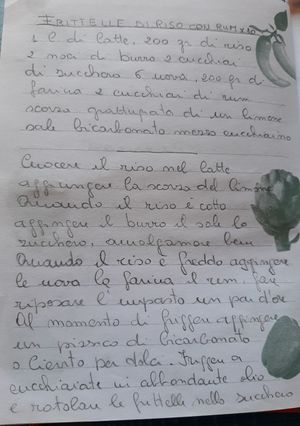 FRITTELLE DI RISO CON RUM X 10
1 l di latte, 200 gr di riso
2 noci di burro 2 cucchiai
di zucchero 6 uova, 200 gr di
farina 2 cucchiai di rum
scorza grattugiata di un limone
sale bicarbonato mezzo cucchiaino
Cuocere il riso nel latte
aggiungere la scorza del limone
Quando il riso è cotto
aggingere il burro il sale lo
zucchero, amalgamare bene
Quando il riso è freddo aggingere
le uova la farina il rum, far
riposare l'impasto un paio d'ore
Al momento di friggere aggingere
un pizzico di bicarbonato
o lievito per dolci. Friggere a
cucchiaiate in abbondante olio
e rotolare le frittelle nello zucchero